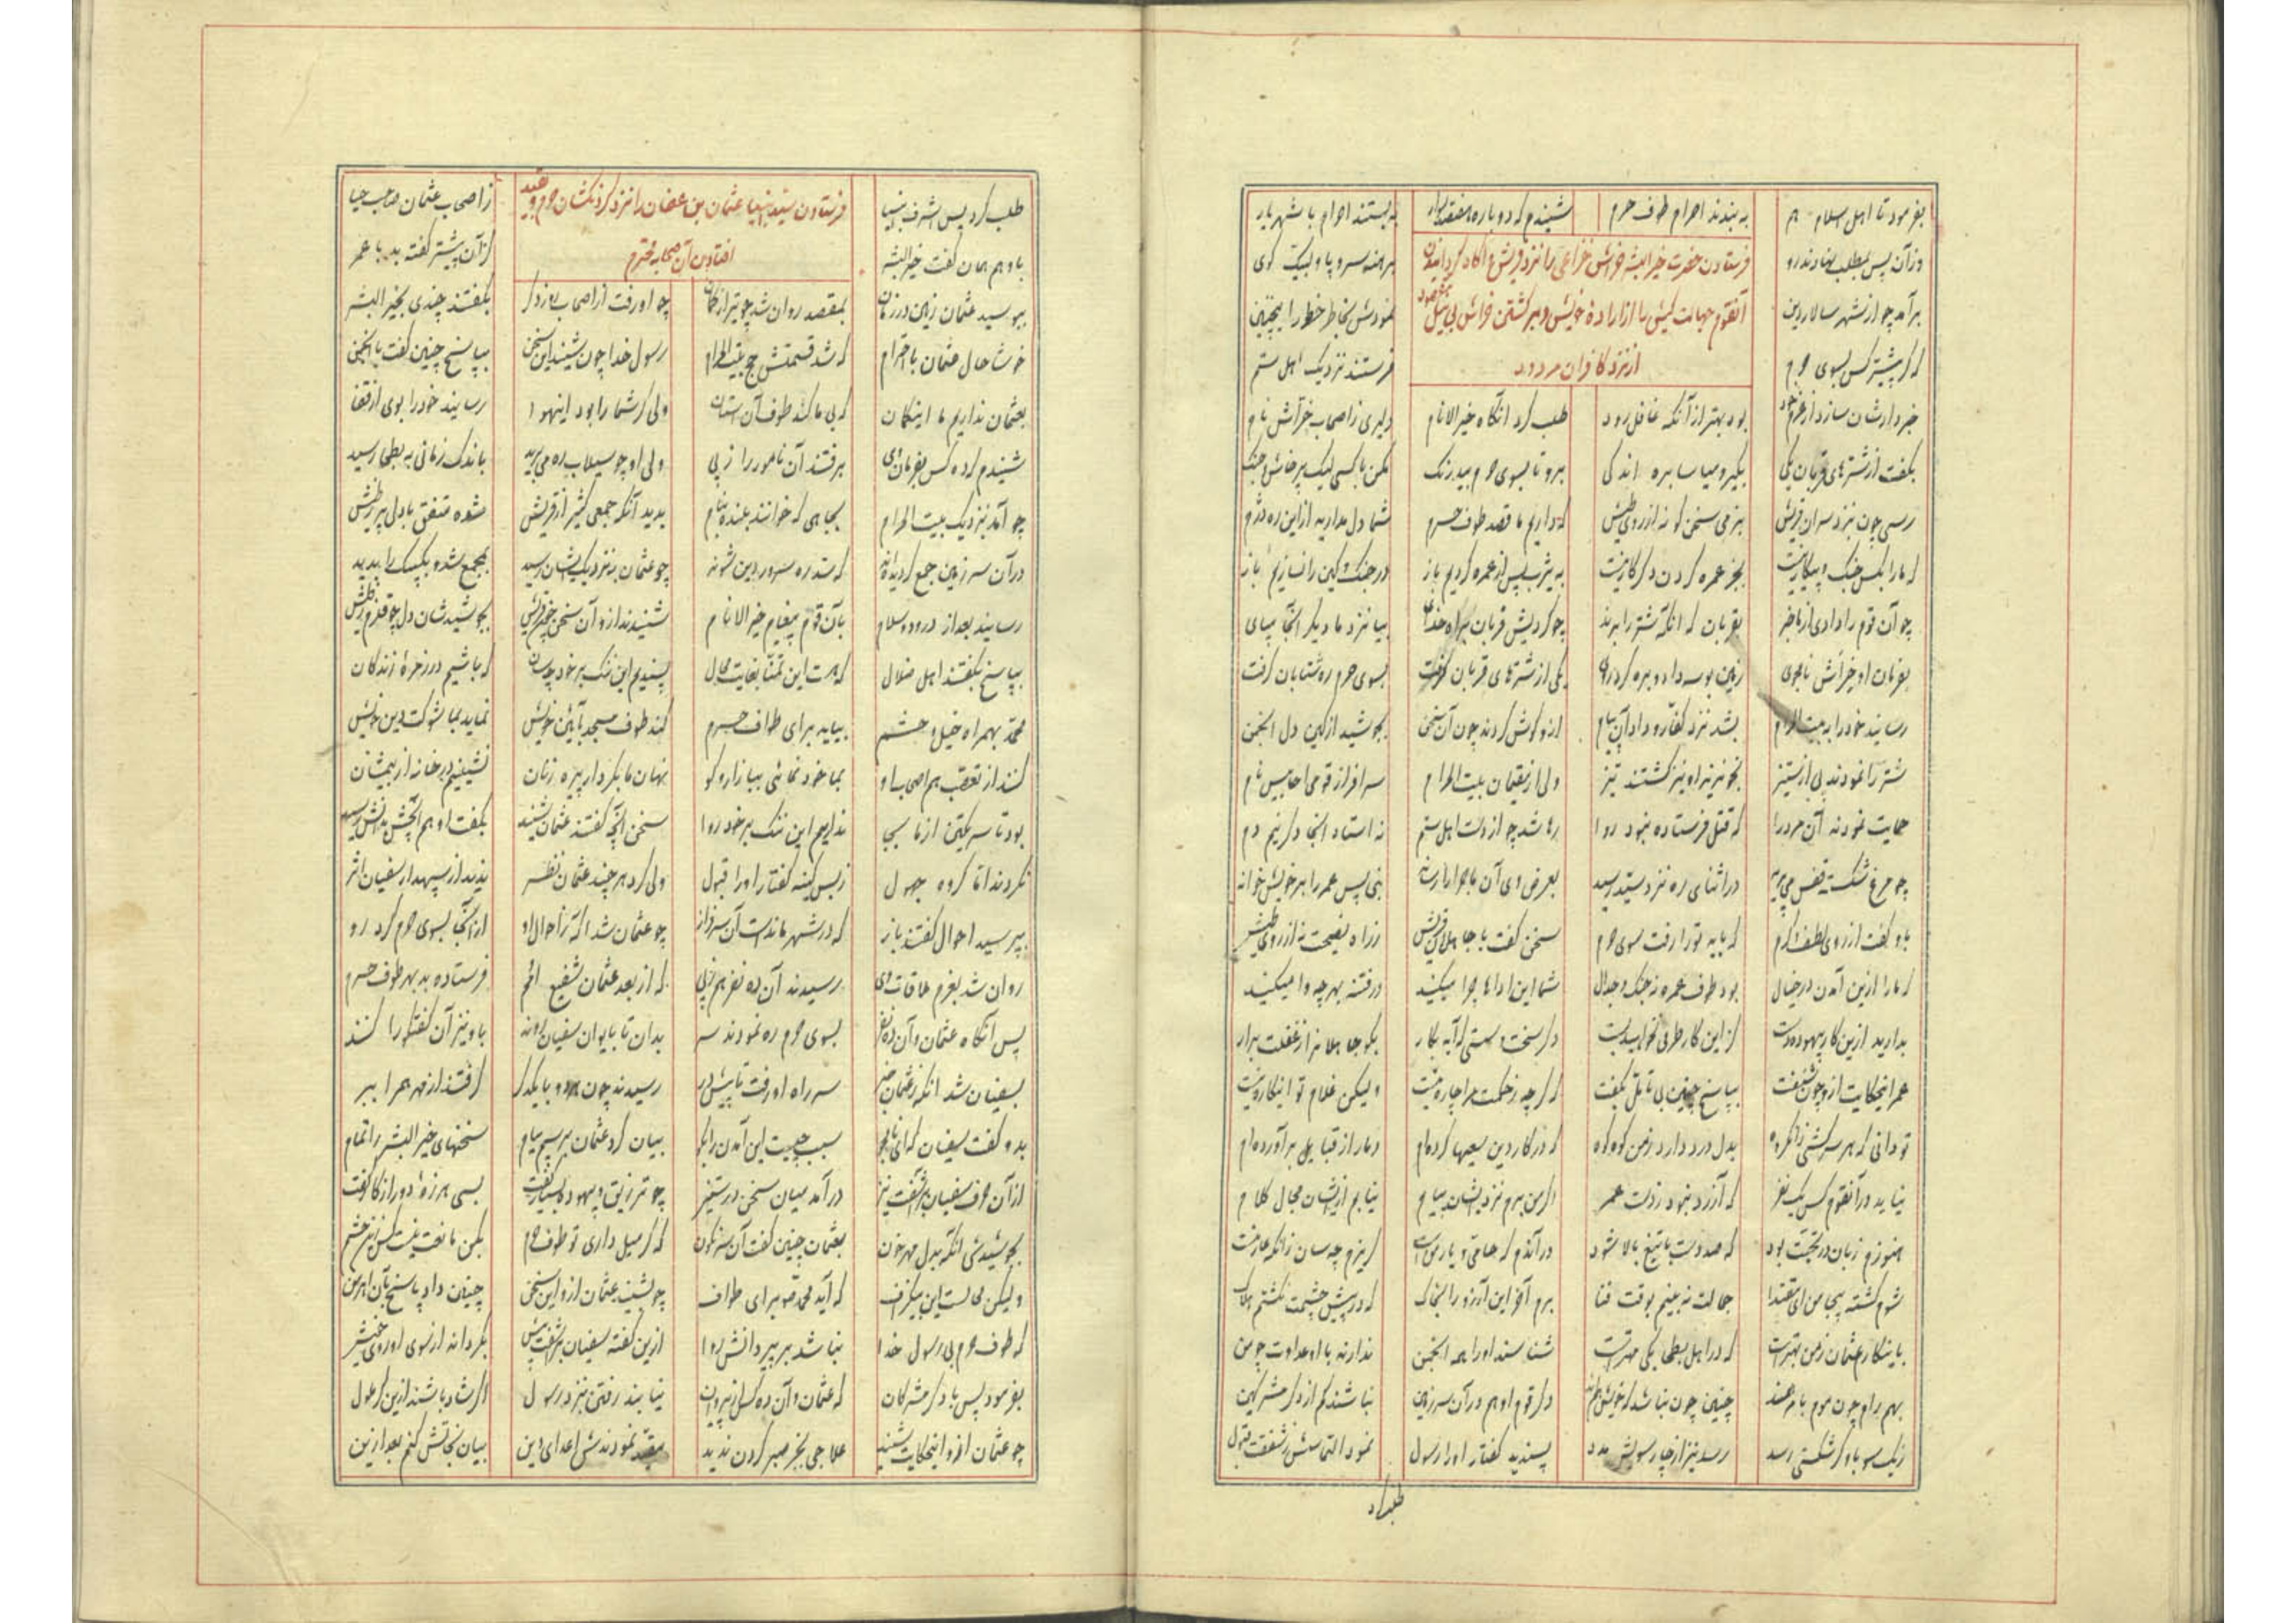 بفرمود تا اهل اسلام هم به بندند احرام طوف حرم شنیدم که دوباره هفتصد سوار به بستند احرام با شهریار
وزآن پس بمطلب نهادند رو برهنه سر و پا و لبیک گوی
فرستادن حضرت خیرالبشر خراش خزاعی را نزد قریش و آگاه گردانیدن
برآمد چو از شهر سالار دین نمودش بخاطر خطور اینچنین
آنقوم جهالت کیش را از ارادهٔ خویش و برگشتن خراش بی نیل مقصود
که گر پیشتر کس بسوی حرم فرستند نزدیک اهل ستم
از نزد کافران مردود
خبردارشان سازد از عزم خود بود بهتر از آنکه غافل رود طلب کرد آنگاه خیرالانام دلیری ز اصحاب خراش نام
بگفت از شترهای قربان یکی بگیر و میاسا بره اندکی برو تا بسوی حرم بیدرنگ مکن با کسی لیک پرخاش و جنگ
رسی چون بنزد سران قریش بنرمی سخن گو نه از روی طیش که داریم ما قصد طوف حرم شما دل مدارید ازاین ره دژم
که ما را بکس جنگ و پیکار نیست بجز عمره کردن دگر کار نیست به یثرب پس از عمره گردیم باز در جنگ و کین را نسازیم باز
چو آن قوم را دادی از ما خبر بقربان گه آنگه شتر را ببر چو کردیش قربان براه خدای بیا نزد ما دیگر آنجا مپای
بفرمان او خراش نامجوی زمین بوسه داد و بره کرد روی یکی از شترهای قربان گرفت بسوی حرم ره شتابان گرفت
رسانید خود را به بیت الحرام بشد نزد کفار و داد آن پیام ازو گوش کردند چون آن سخن بجوشید از کین دل انجمن
شتر را نمودند پی از ستیز بخونریز او نیز گشتند تیز ولی از مقیمان بیت الحرام سرافراز قومی احابیس نام
حمایت نمودند آن مرد را که قتل فرستاده نبود روا رها شد چو از دست اهل ستم نه استاد آنجا دگر نیم دم
چو مرغ شکسته قفس می پرید در اثنای ره نزد سید رسید بعرض وی آن ماجرا رساند نبی پس عمر را بر خویش خواند
باو گفت از روی لطف و کرم که باید تو را رفت سوی حرم سخن گفت با جاهلان قریش ز راه نصیحت نه از روی طیش
که ما را ازین آمدن در خیال بود طوف عمره نه جنگ و جدال شما این اداها چرا میکنید در فتنه بهر چه وا میکنید
بدارید ازین کار بیهوده دست کزاین کار طرفی نخواهید بست
عمر اینحکایت ازو چون شنفت بپاسخ چنین بی تامل بگفت که گرچه ز حکمت مرا چاره نیست ولیکن غلام تو اینکاره نیست
تو دانی که هر سرکشی زانگروه بدل درد دارد ز من کوه کوه که در کار دین سعیها کرده‌ام دمار از قبایل برآورده‌ام
نیاید در آنقوم کس یک نفر که آزرده نبود ز دست عمر اگر من برم نزد ایشان پیام نیابم ازیشان مجال کلام
هنوزم زبان در تحیت بود که صد دست با تیغ بالا شود
شوم کشته بیجا من ای مقتدا جمالت نه بینم بوقت فنا برم آخر این آرزو را بخاک که در پیش چشمت نگشتم هلاک
باینکار عثمان ز من بهتر است که در اهل بطحا یکی مهتر است شناسند او را همه انجمن ندارند با او عداوت چو من
بهم رام چون موم با مر همند چنین چون نباشد که خویش همند دگر قوم او هم در آن سرزمین نباشند کم از دگر مشرکین
ز یکسو باو گر شکستی رسد رسد نیز از چارسویش مدد پسندید گفتار او را رسول نمود التماسش ز شفقت قبول
طلب کرد
طلب کرد پس اشرف انبیا ز اصحاب عثمان صاحب حیا
فرستادن سید انبیا عثمان بن عفان را نزد گردنکشان حرم و بقید
باو هم همان گفت خیرالبشر کز آن پیشتر گفته بد با عمر
افتادن آن صحابه محترم
ببوسید عثمان زمین در زمان بمقصد روان شد چو تیر از کمان چو او رفت از اصحاب روز دگر بگفتند چندی بخیرالبشر
خوشا حال عثمان با احترام که شد قسمتش حج بیت الحرام رسول خدا چون شنید این سخن بپاسخ چنین گفت با انجمن
بعثمان نداریم ما این گمان که بی ما کند طوف آن آستان ولی گر شما را بود اینهوا رسانید خود را بوی از قفا
شنیدم که ده کس بفرمان وی برفتند آن نامور را ز پی ولی او چو سیلاب ره می برید باندک زمانی به بطحا رسید
چو آمد بنزدیک بیت الحرام بجایی که خوانند بلدح بنام بدید آنکه جمعی کثیر از قریش شده متفق با دلی پر ز طیش
در آن سرزمین جمع گردیده‌اند که سد ره سرور دین شوند چو عثمان بنزدیک ایشان رسید
رسانید بعد از درود و سلام بآن قوم پیغام خیرالانام شنیدند ازو آن سخن چون قریش بجوشیدشان دل چو قلزم ز طیش
بپاسخ بگفتند اهل ضلال که هست این تمنا بغایت محال پسندیم این ننگ بر خود چسان که باشیم در زمرهٔ زندگان
محمد بهمراه خیل و حشم بیاید برای طواف حرم کند طوف مسجد بآئین خویش نماید بما شوکت دین خویش
کنند از تعقب هم اصحاب او بما خودنمائی ببازار و کو نهان ما بکردار پیره زنان نشینیم در خانه از بیمشان
بود تا سر یکتن از ما بجا نداریم این ننگ بر خود روا سخن آنچه گفتند عثمان شنید بگفت او هم آنچش بدانش رسید
نکردند اما گروه جهول ز بس کینه گفتار او را قبول ولی کرد هر چند عثمان نظر ندید از سپهدار سفیان اثر
بپرسید احوال گفتند باز که در شهر ماندست آن سرفراز چو عثمان شد آگه ز احوال او از آنجا بسوی حرم کرد رو
روان شد بعزم ملاقات وی رسیدند آن ده نفر هم ز پی که از بعد عثمان شفیع امم فرستاده بد بهر طوف حرم
پس آنگاه عثمان و آن ده نفر بسوی حرم ره نمودند سر بدان تا بایوان سفیان روند باو نیز آن گفتگو را کنند
بسفیان شد آنگه ز عثمان خبر سر راه او رفت تا پیش در رسیدند چون هر دو با یکدگر گرفتند از مهر هم را ببر
بدو گفت سفیان که ای نامجو سبب چیست این آمدن را بگو بیان کرد عثمان برسم پیام سخنهای خیرالبشر را تمام
از آن حرف سفیان برآشفت نیز درآمد میان سخن در ستیز بسی هرزهٔ دور از کار گفت
بجوشیدش آنگه بدل مهر خون بعثمان چنین گفت آن سرنگون که گر میل داری تو طوف حرم بکن مانعت نیست کس زین حشم
ولیکن محالست این بیگزاف که آید محمد برای طواف چو بشنید عثمان ازو این سخن چنین داد پاسخ بآن اهرمن
که طوف حرم بی رسول خدا نباشد بر پیر دانش روا ازین گفته سفیان برآشفت بیش بگرداند از سوی او روی خویش
بفرمود پس با دگر مشرکان که عثمان و آن ده کس از پیروان نیابند رفتن بنزد رسول اگر شاد باشند ازین گر ملول
چو عثمان ازو اینحکایت شنید علاجی بجز صبر کردن ندید مقید نمودندش اعدای دین بیان نجاتش کنم بعد ازین